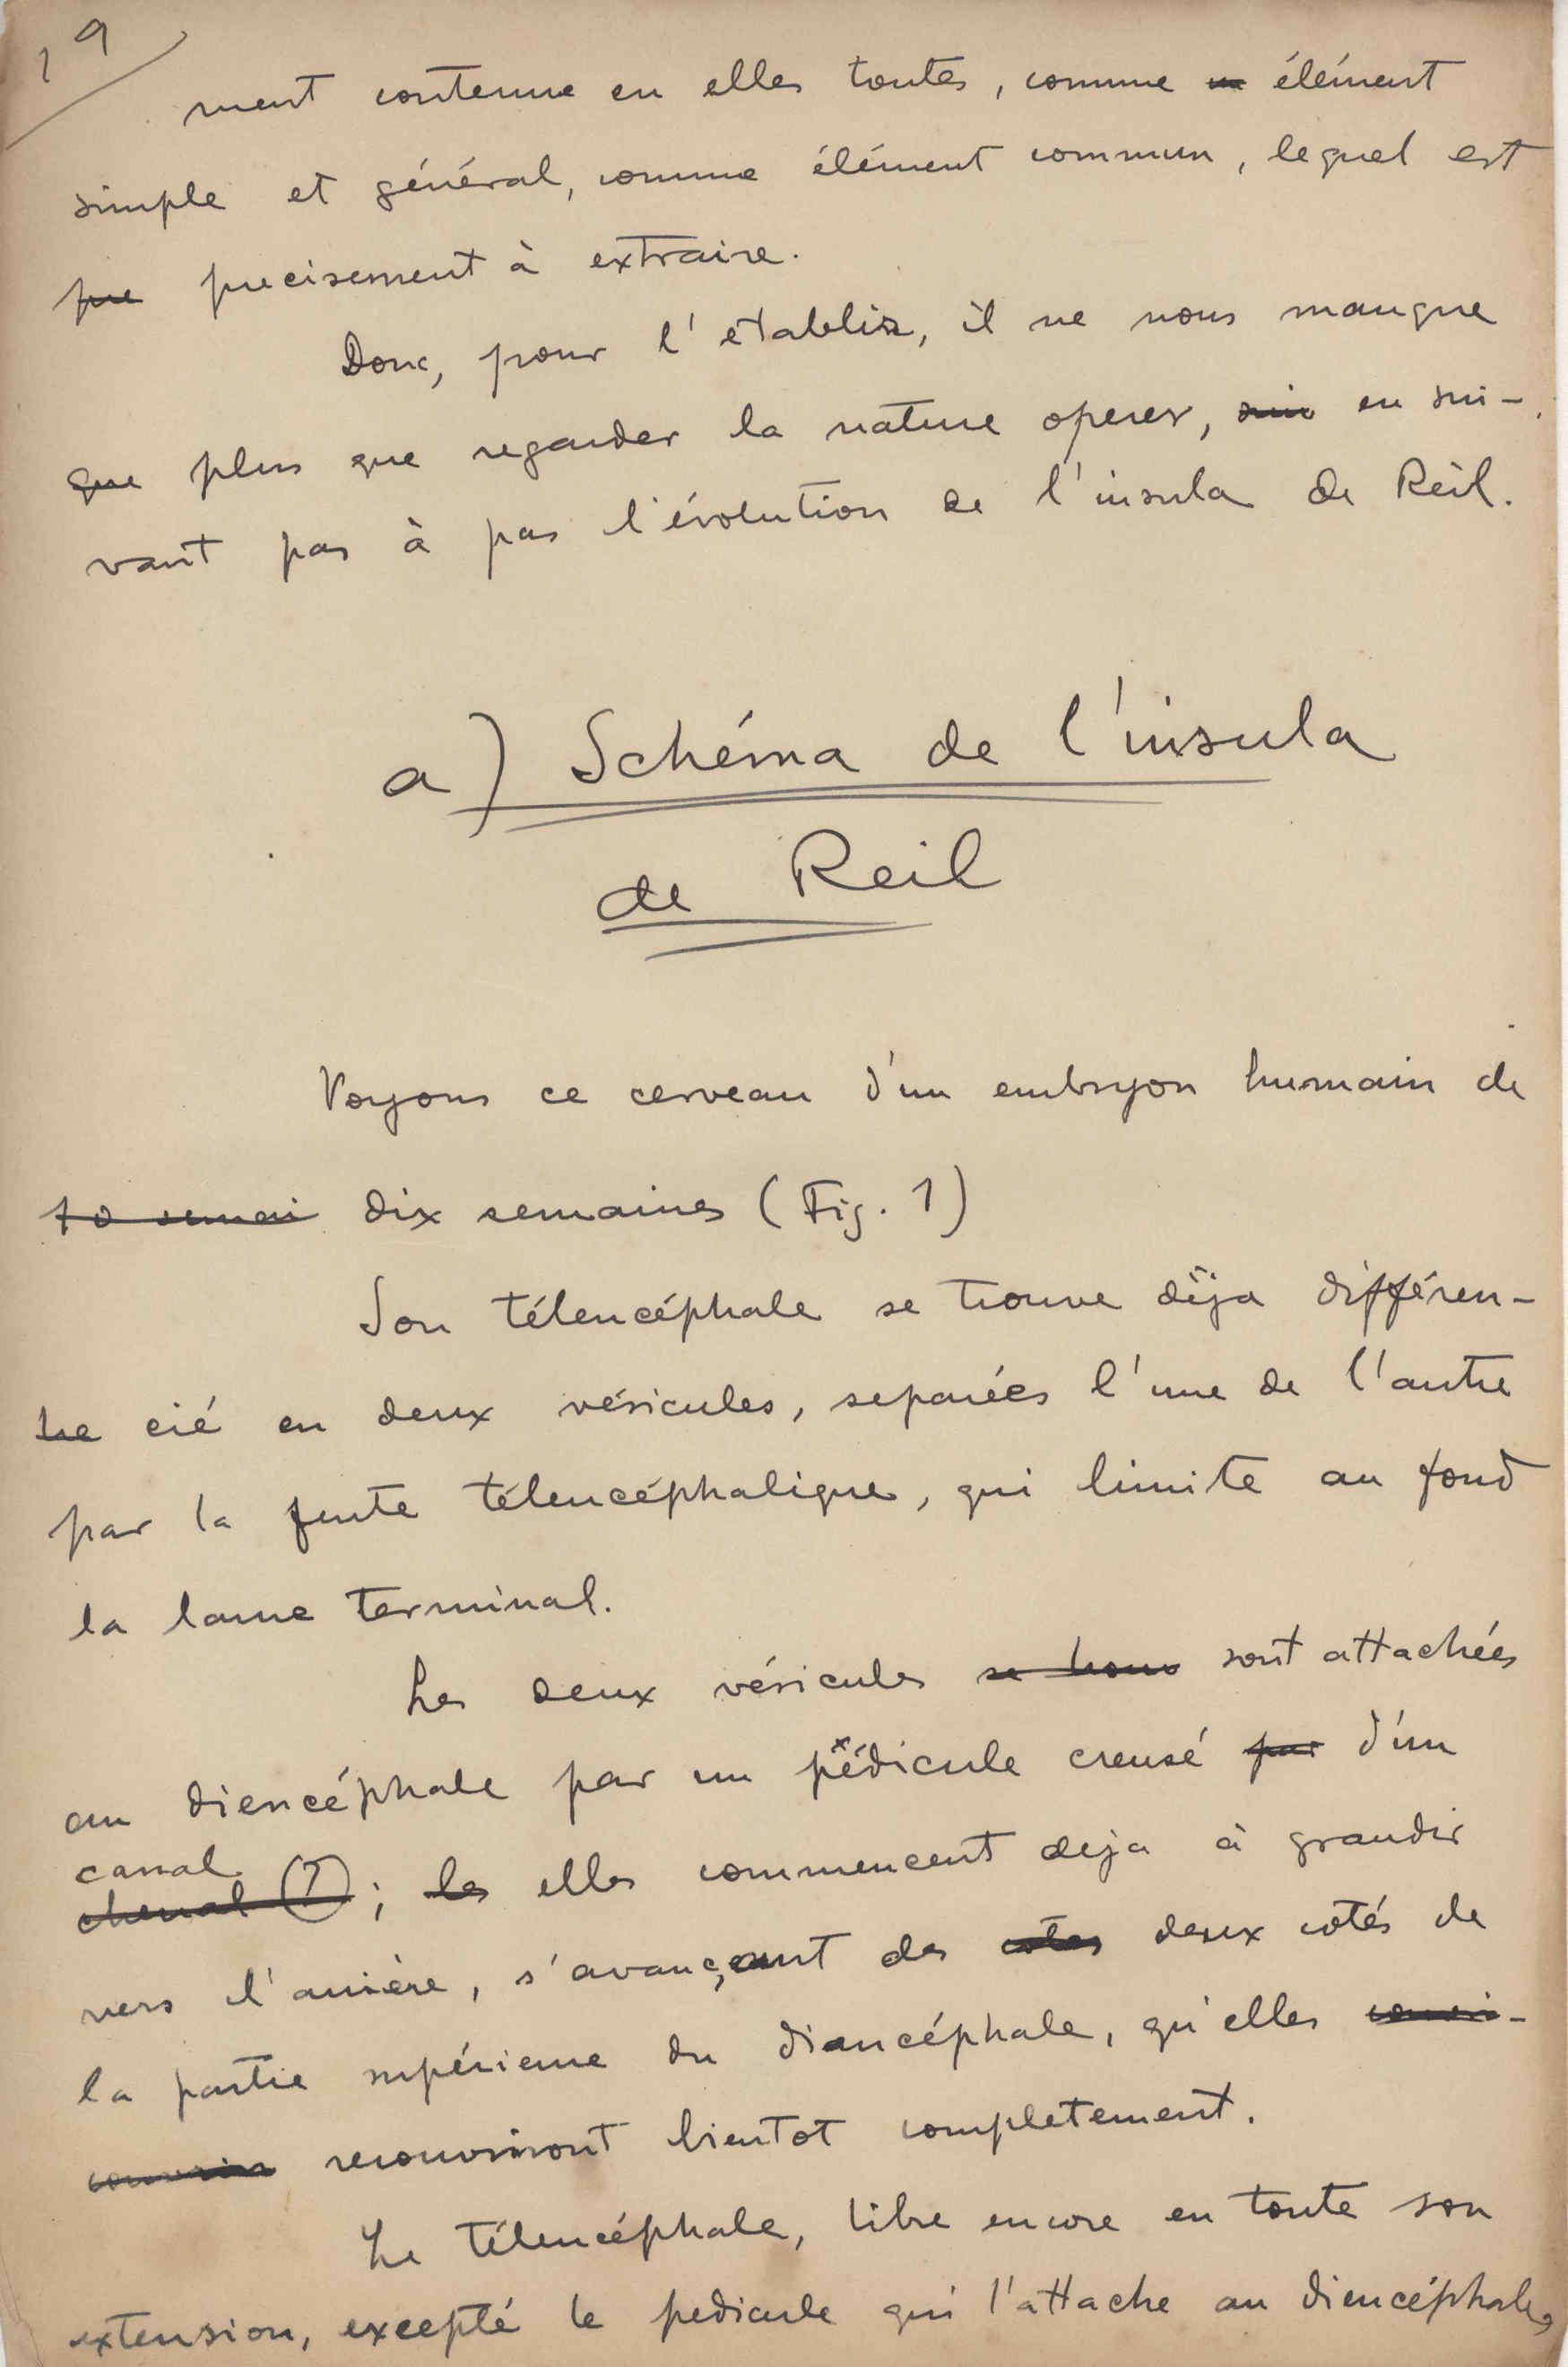 19
ment contenue en elles toutes, comme un élément
simple et général, comme élément commun, lequel est
pre precisement à extraire.
Donc, pour l'etablir, il ne nous manque
que plus que regarder la nature operer, sui en sui-
vant pas à pas l'évolution de l'insula de Reil.
a) Schéma de l'insula
de Reil
Voyons ce cerveau d'un embryon humain de
10 semai dix semaines (Fig. 1)
Son télencéphale se trouve déja différen-
cié en deux vésicules, separées l'une de l'autre
par la fente télencéphalique, qui limite au fond
la lame terminal.
Les deux vésicules se trouv sont attachées
au diencéphale par un pédicule creusé par d'un
canal
chenal (?); les elles commencent deja à grandir
vers l'arrière, s'avançant des cotes deux cotés de
la partie supérieure du diancéphale, qu'elles
recouvriront bientot completement.
Le télencéphale, libre encore en toute son
extension, excepté le pedicule qui l'attache au diencéphale,